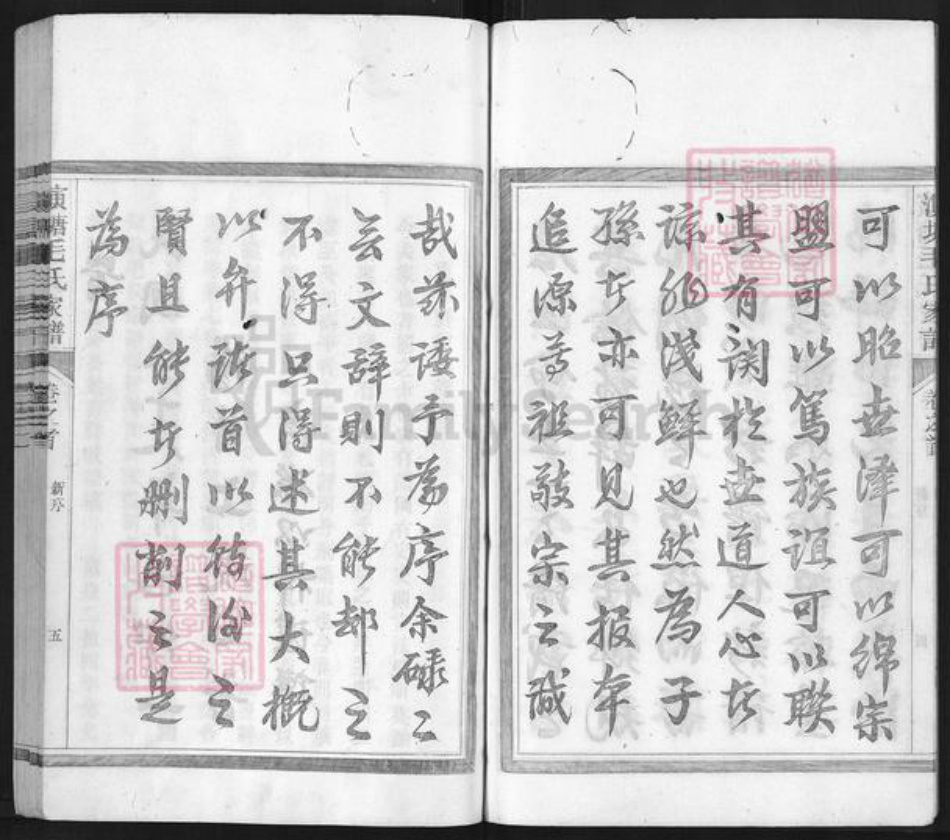 可以昭世澤可以綿宗
盟可以篤族誼可以聯
其有関於世道人心者
諒非淺鮮也然為子
孫者亦可見其報本
追源尊祖敬宗之誠
哉茲諉予為序余碌々
無文辭則不能却之
不得只得述其大概
以弁諸首以待後之
賢且能者刪削之是
為序
塘毛氏家譜
卷之首
新序
五
FamilySearch